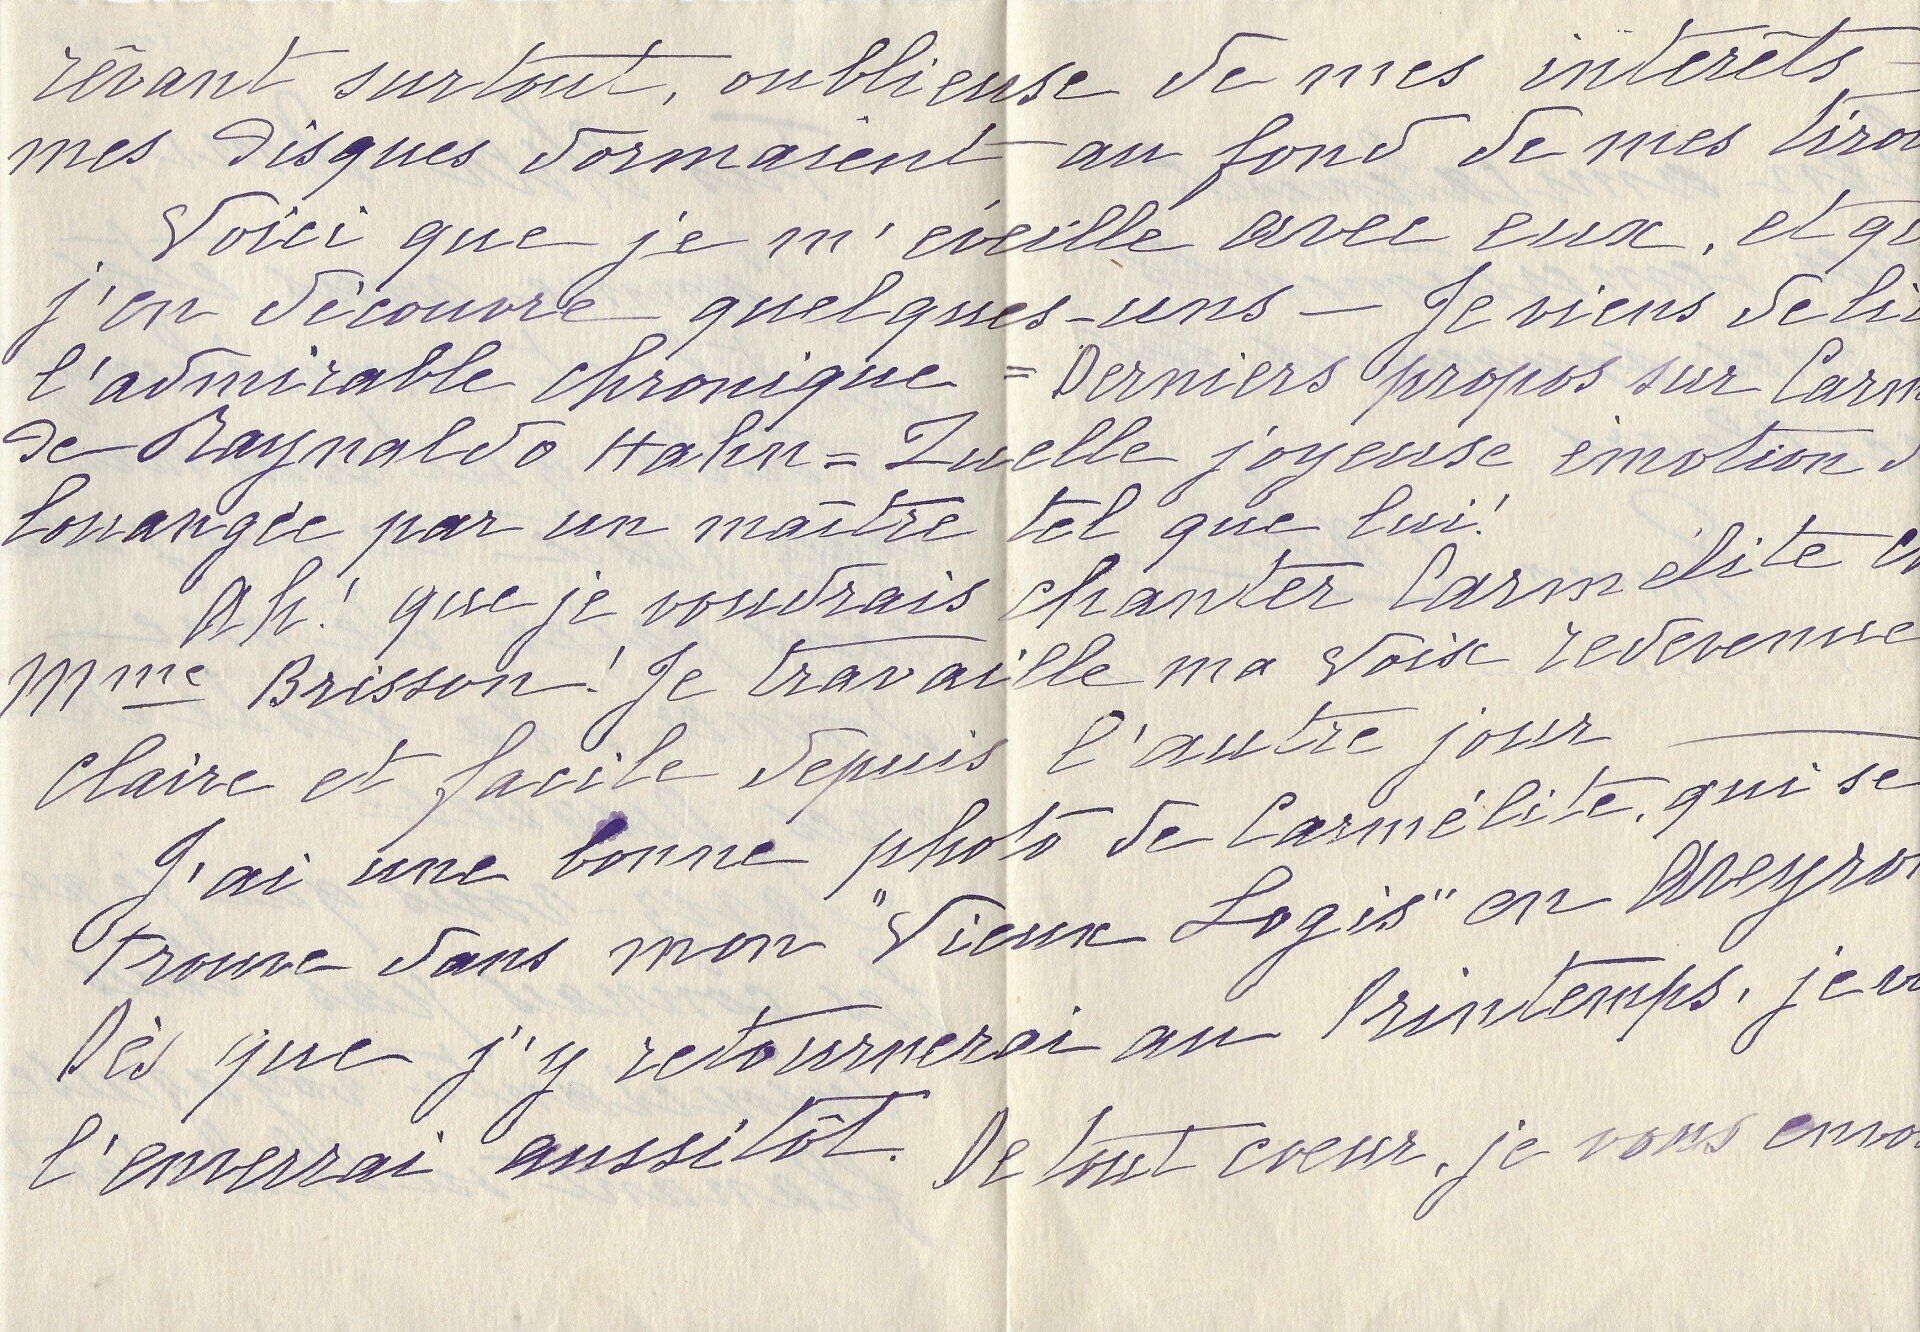 rêvant surtout, oublieuse de mes intérêts —
mes disques dormaient au fond de mes tirou
Voici que je m'éveille avec eux, et qu
j'en découvre quelques-uns — Je viens de li
l'admirable chronique = Derniers propos sur Carm
de Raynaldo Hahn = Quelle joyeuse émotion d
louangée par un maître tel que lui!
Ah! que je voudrais chanter Carmélite ch
Mme Brisson! Je travaille ma voix redevenue
claire et facile depuis l'autre jour —
J'ai une bonne photo de Carmélite, qui se
trouve dans mon "Vieux Logis" en Aveyron
Dès que j'y retournerai au Printemps, je v
l'enverrai aussitôt. De tout cœur, je vous envoi